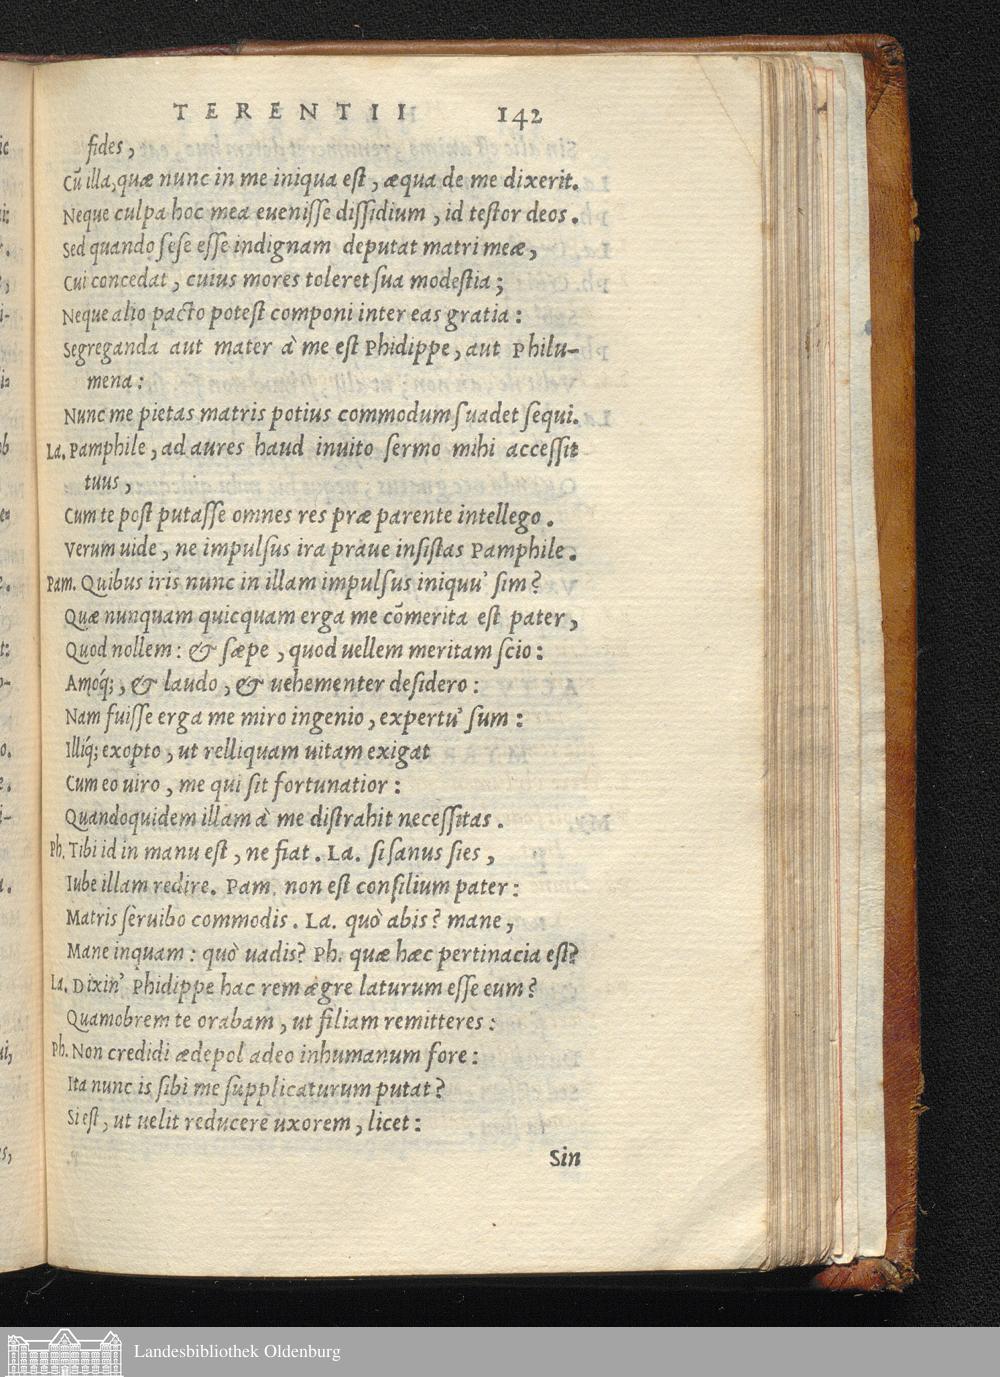 TERENTII 142
fides,
Cũ illa, quæ nunc in me iniqua est, æqua de me dixerit.
Neque culpa hoc mea euenisse dissidium, id testor deos.
Sed quando sese esse indignam deputat matri meæ,
Cui concedat, cuius mores toleret sua modestia;
Neque alio pacto potest componi inter eas gratia:
Segreganda aut mater à me est Phidippe, aut Philu-
mena:
Nunc me pietas matris potius commodum suadet sequi.
La. Pamphile, ad aures haud inuito sermo mihi accessit
tuus,
Cum te post putasse omnes res præ parente intellego.
Verum uide, ne impulsus ira praue insistas Pamphile.
Pam. Quibus iris nunc in illam impulsus iniquu' sim?
Quæ nunquam quicquam erga me cõmerita est pater,
Quod nollem: & sæpe, quod uellem meritam scio:
Amoq́;, & laudo, & uehementer desidero:
Nam fuisse erga me miro ingenio, expertu' sum:
Illiq́; exopto, ut relliquam uitam exigat
Cum eo uiro, me qui sit fortunatior:
Quandoquidem illam à me distrahit necessitas.
Ph. Tibi id in manu est, ne fiat. La. si sanus sies,
Iube illam redire. Pam. non est consilium pater:
Matris seruibo commodis. La. quò abis? mane,
Mane inquam: quò uadis? Ph. quæ hæc pertinacia est?
La. Dixin' Phidippe hac rem ægre laturum esse eum?
Quamobrem te orabam, ut filiam remitteres:
Ph. Non credidi ædepol adeo inhumanum fore:
Ita nunc is sibi me supplicaturum putat?
Si est, ut uelit reducere uxorem, licet:
Sin
Landesbibliothek Oldenburg